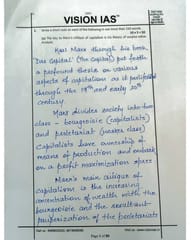 VISION IAS™
1. Write a short note on each of the following in not more than 150 words: 10 x 5 = 50
(a) The key to Marx's critique of capitalism is his theory of surplus value.
Karl Marx through his book
'Das Capital' (The Capital) put forth
a profound thesis on various
aspects of capitalism as it
through the 18th and early 20th
century.
Marx divides society into two
class - bourgeoisie (capitalists)
and proletariat (worker class)
Capitalists have ownership of
means of production and embark
on a profit maximization spree
Marx's main critique of
capitalism is the increasing
concentration of wealth with the
bourgeoisie and the resultant
of the proletariats